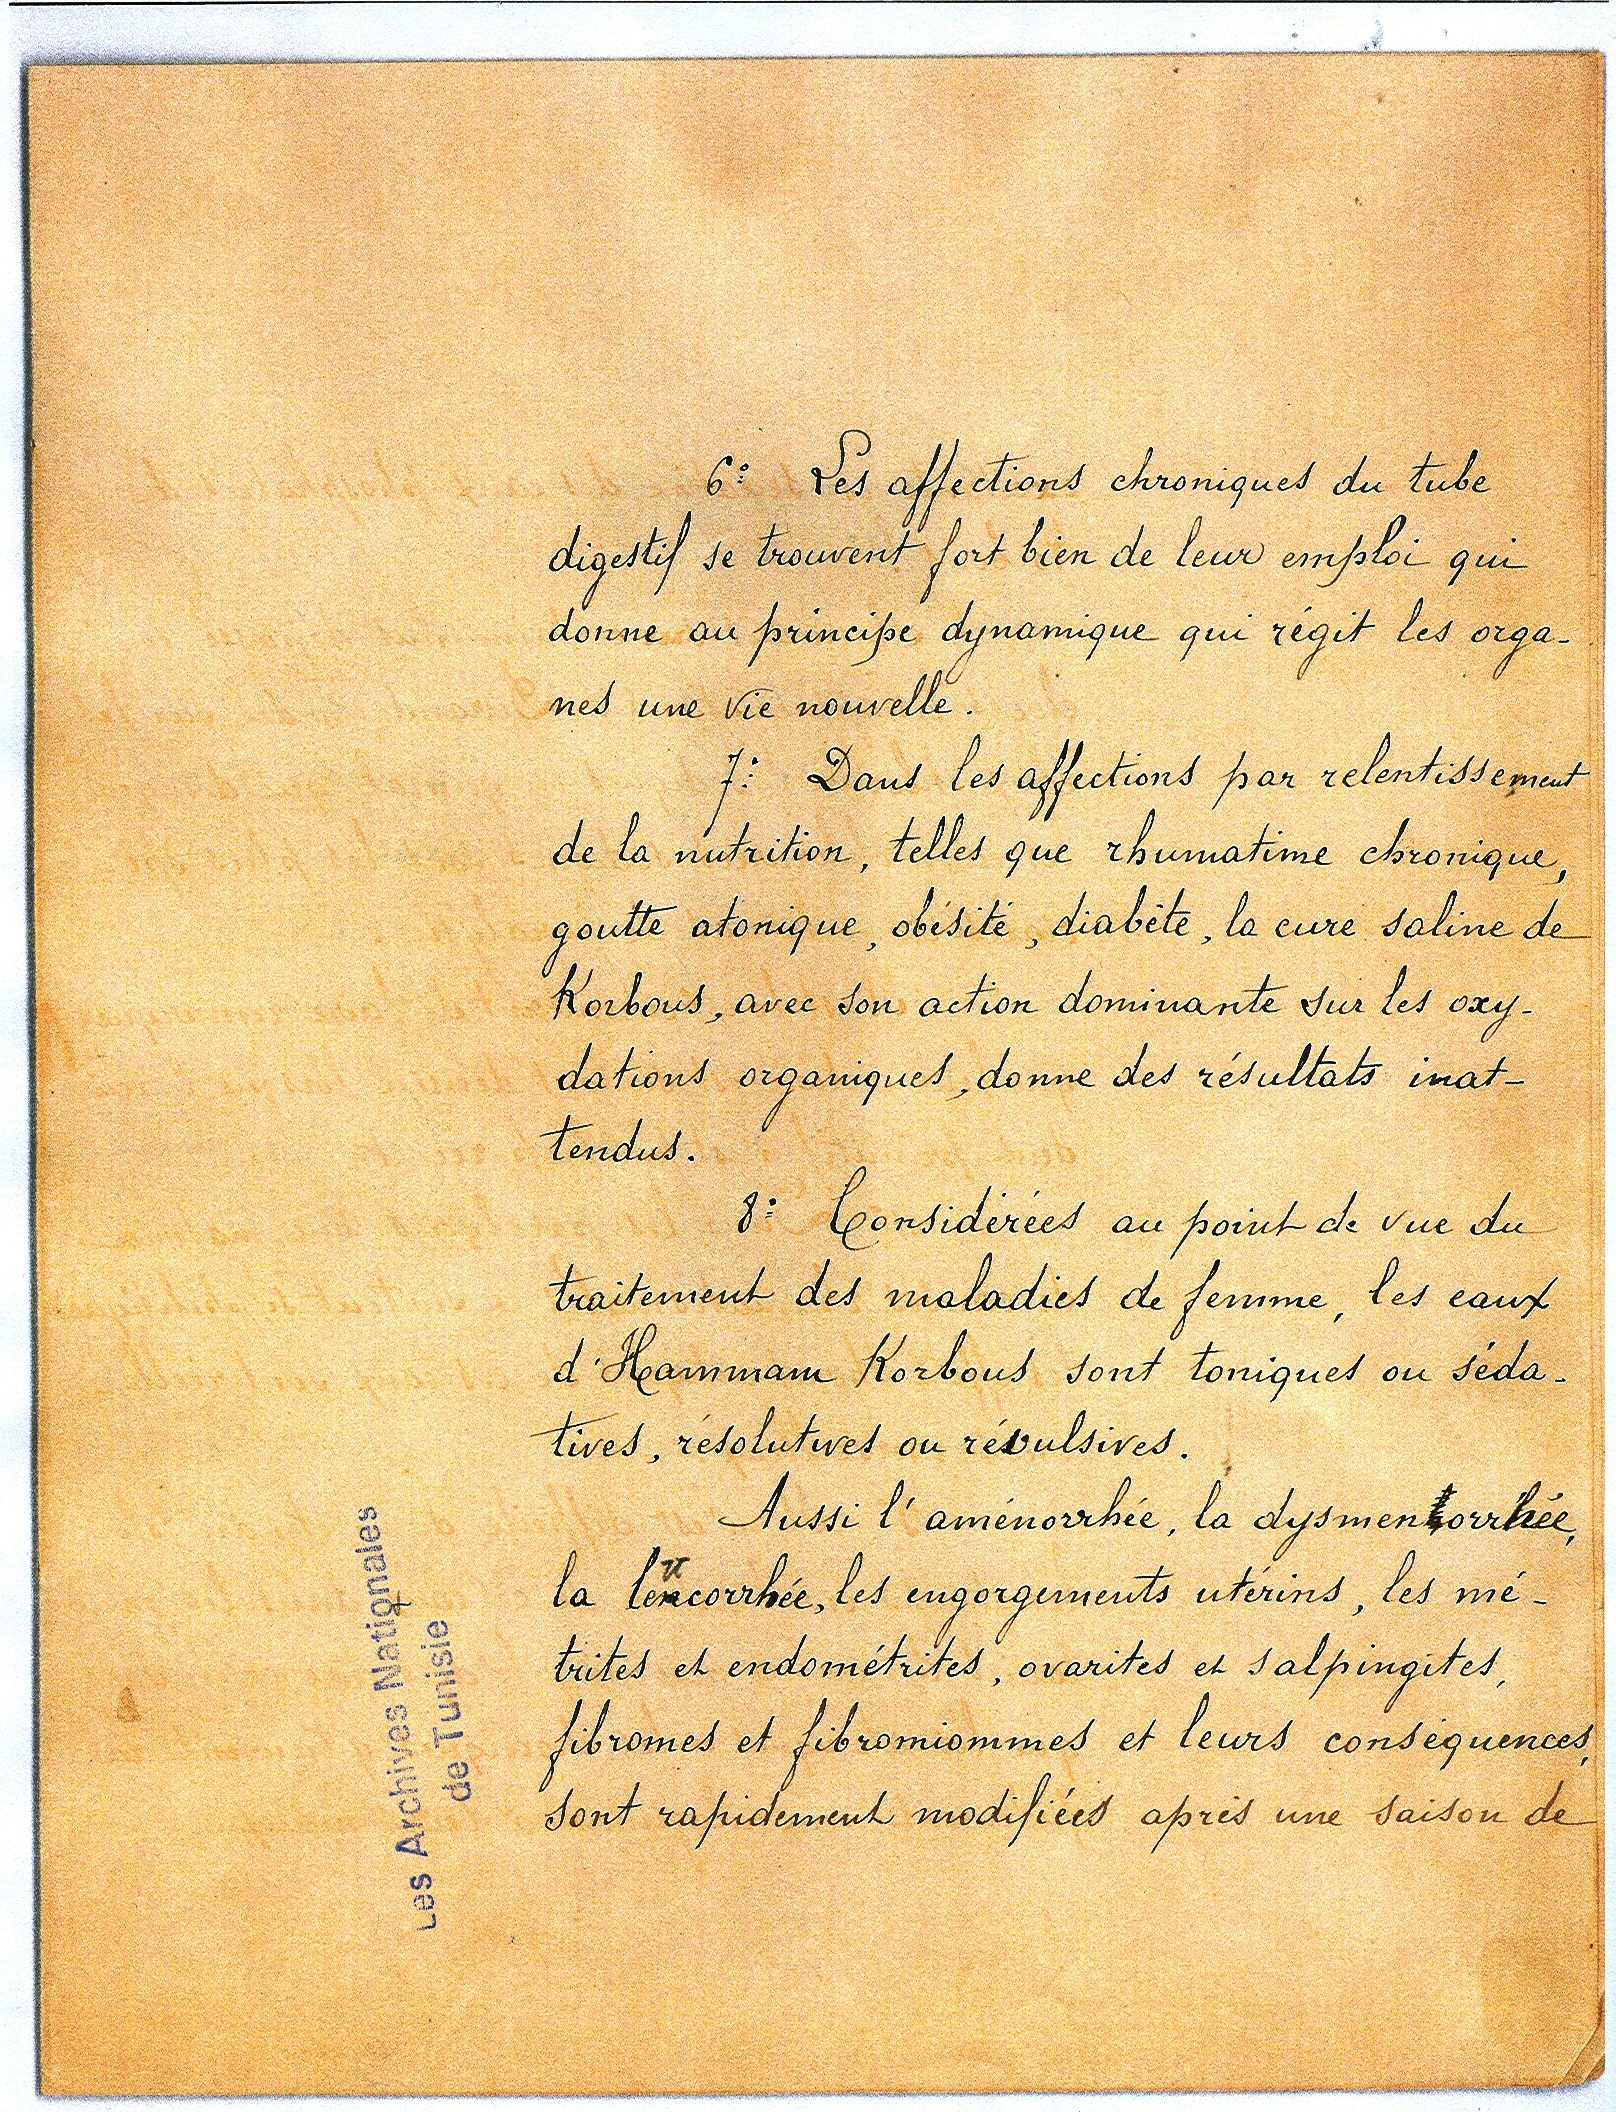 6º Les affections chroniques du tube
digestif se trouvent fort bien de leur emploi qui
donne au principe dynamique qui régit les orga-
nes une vie nouvelle.
7º Dans les affections par relentissement
de la nutrition, telles que rhumatime chronique,
goutte atonique, obésité, diabète, la cure saline de
Korbous, avec son action dominante sur les oxy-
dations organiques, donne des résultats inat-
tendus.
8º Considérées au point de vue du
traitement des maladies de femme, les eaux
d'Hammam Korbous sont toniques ou séda-
tives, résolutives ou révulsives.
Aussi l'aménorrhée, la dysmenorrhée,
la leucorrhée, les engorgements utérins, les mé-
trites et endométrites, ovarites et salpingites,
fibromes et fibromiommes et leurs conséquences,
sont rapidement modifiées après une saison de
Les Archives Nationales
de Tunisie